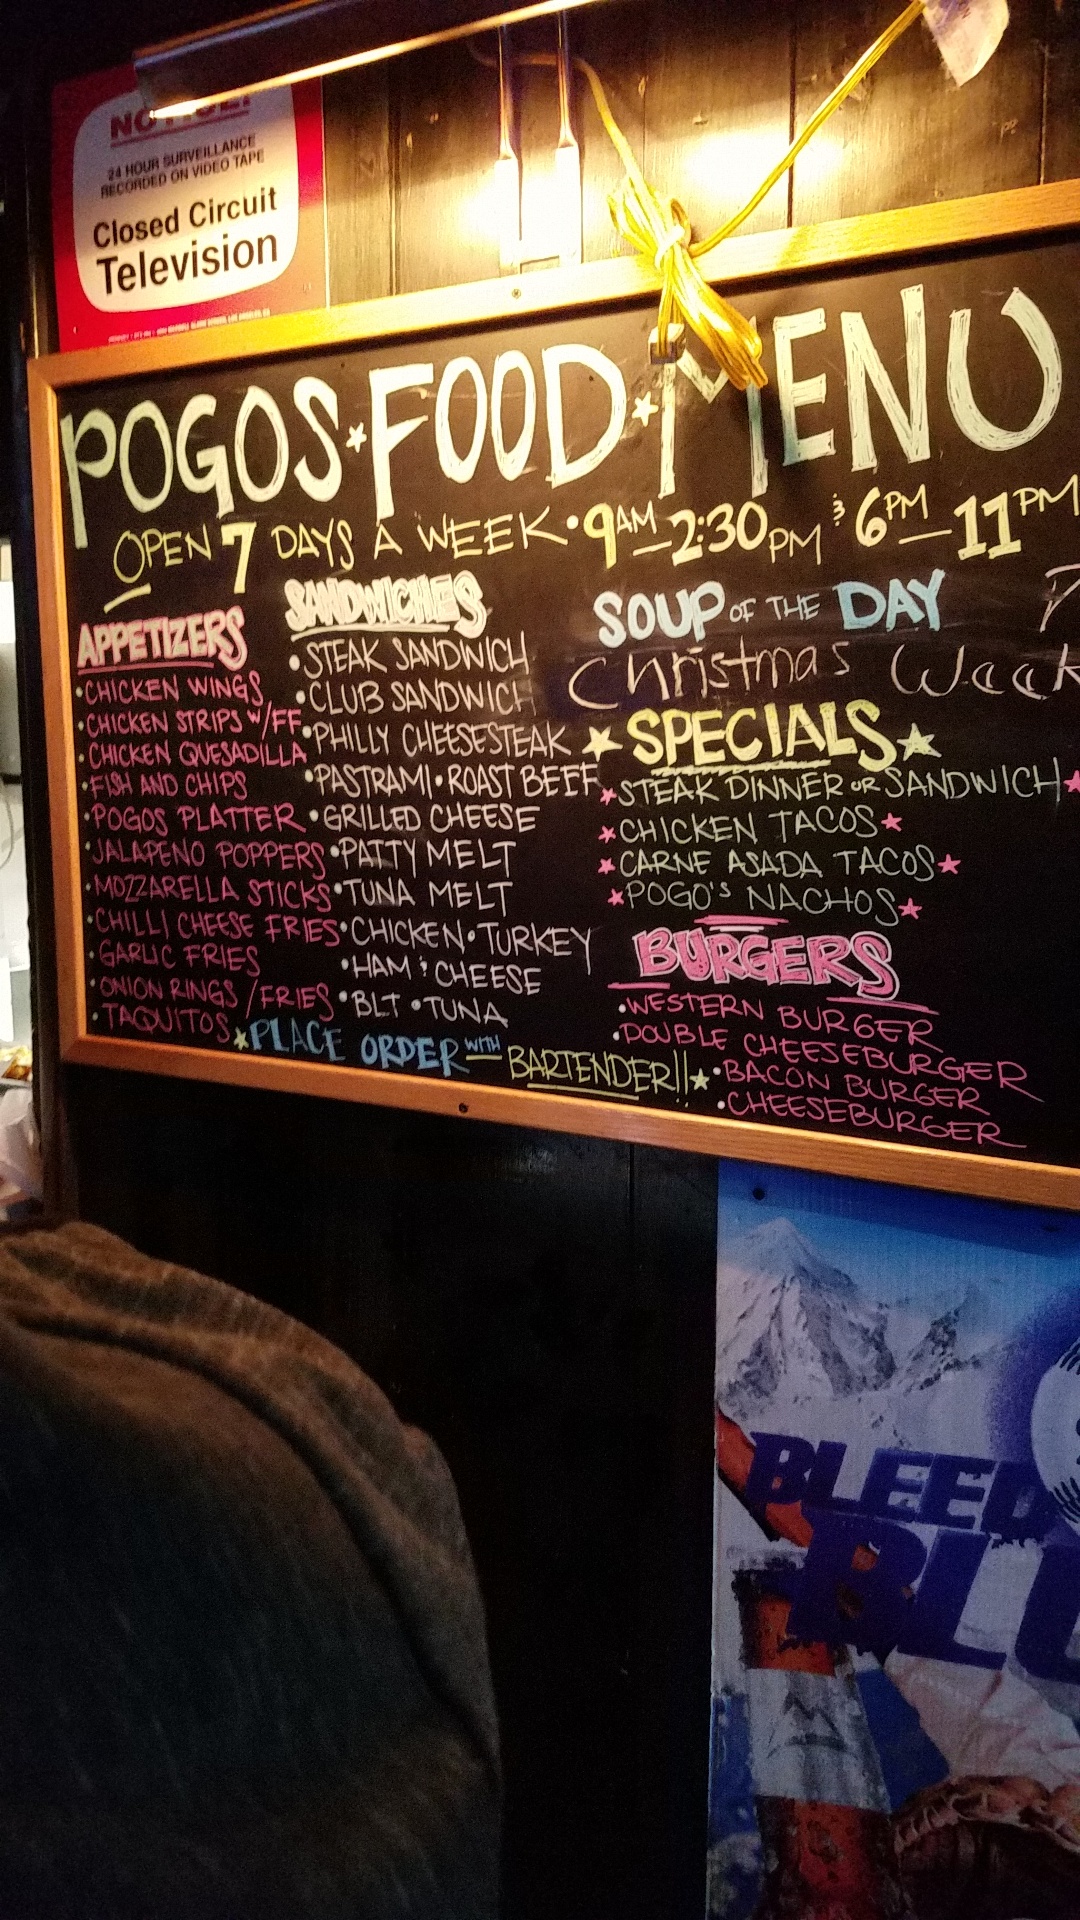 NOTICE!
24 HOUR SURVEILLANCE
RECORDED ON VIDEO TAPE
Closed Circuit
Television
POGOS FOOD MENU
OPEN 7 DAYS A WEEK • 9AM - 2:30PM & 6PM - 11PM
APPETIZERS
• CHICKEN WINGS
• CHICKEN STRIPS W/FF
• CHICKEN QUESADILLA
• FISH AND CHIPS
• POGOS PLATTER
• JALAPENO POPPERS
• MOZZARELLA STICKS
• CHILLI CHEESE FRIES
• GARLIC FRIES
• ONION RINGS / FRIES
• TAQUITOS
SANDWICHES
• STEAK SANDWICH
• CLUB SANDWICH
• PHILLY CHEESESTEAK
• PASTRAMI • ROAST BEEF
• GRILLED CHEESE
• PATTY MELT
• TUNA MELT
• CHICKEN • TURKEY
• HAM & CHEESE
• BLT • TUNA
PLACE ORDER WITH BARTENDER!!
SOUP OF THE DAY
Christmas Week
SPECIALS
STEAK DINNER OR SANDWICH
CHICKEN TACOS
CARNE ASADA TACOS
POGO'S NACHOS
BURGERS
• WESTERN BURGER
• DOUBLE CHEESEBURGER
• BACON BURGER
• CHEESEBURGER
BLEED
BLU